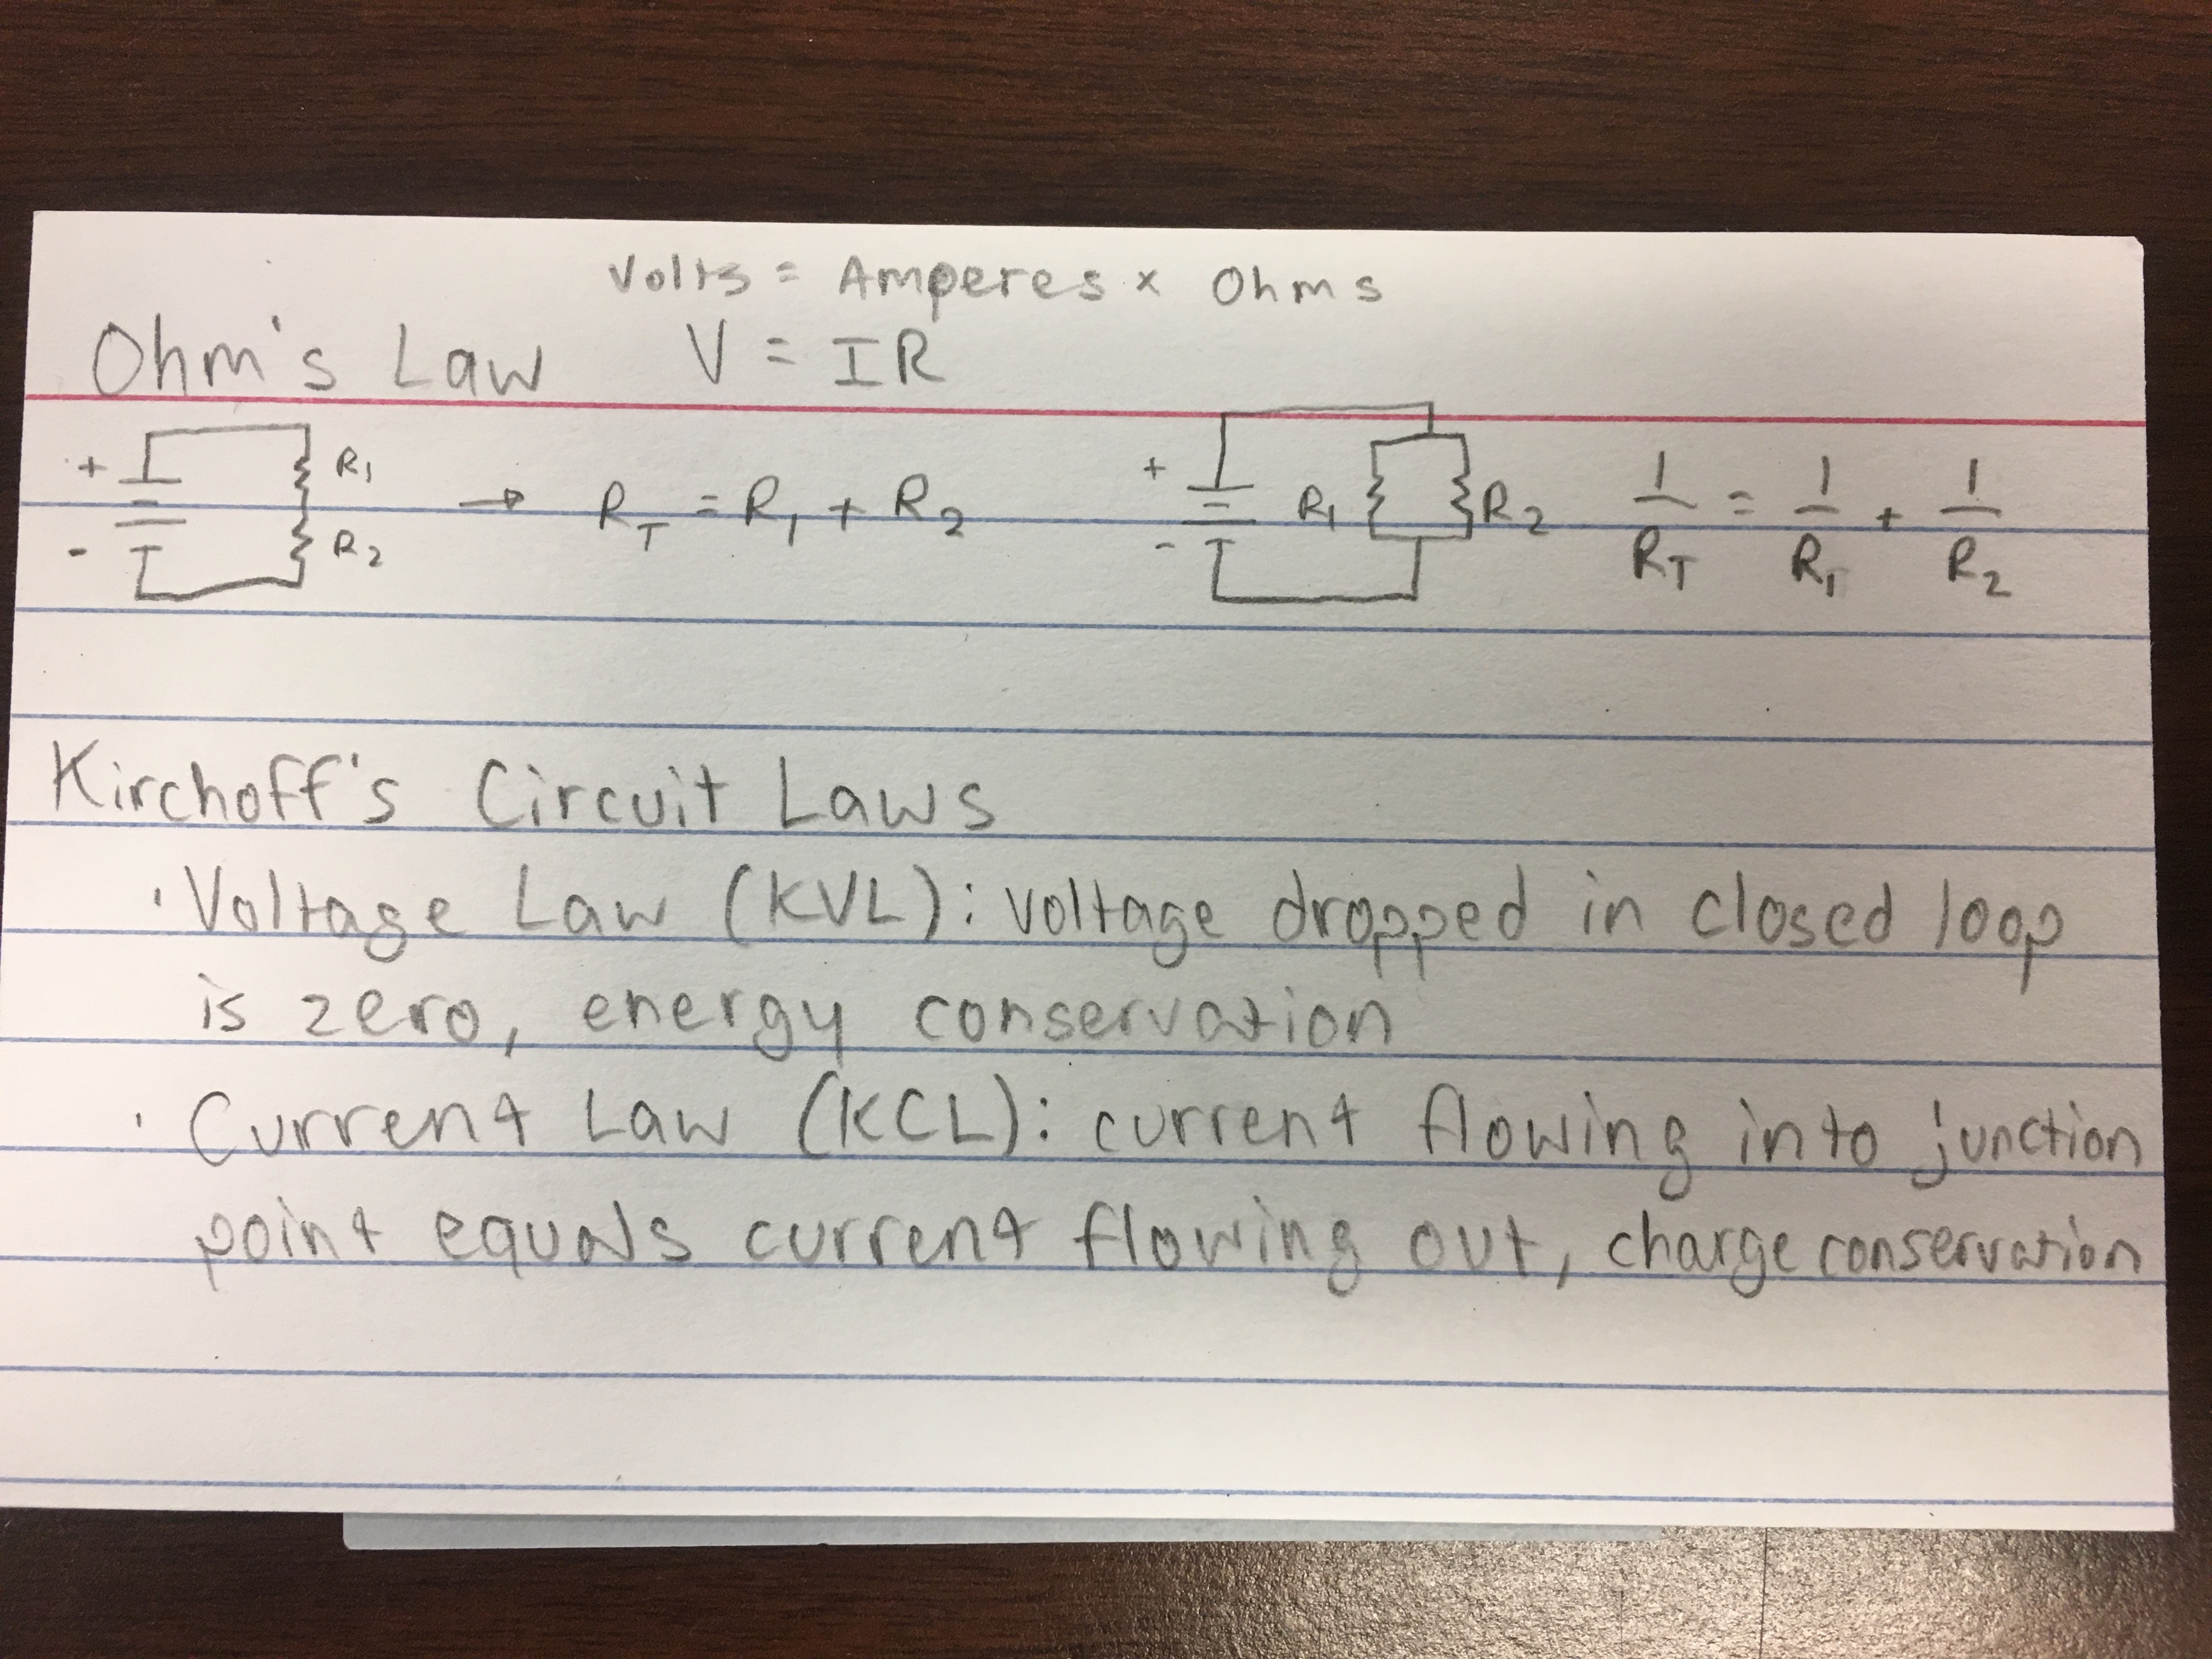 Volts = Amperes x Ohms
Ohm's Law V = IR
+ R1 → RT = R1 + R2 + R1 R2 1/RT = 1/R1 + 1/R2
- R2 -
Kirchoff's Circuit Laws
· Voltage Law (KVL): voltage dropped in closed loop
is zero, energy conservation
· Current Law (KCL): current flowing into junction
point equals current flowing out, charge conservation